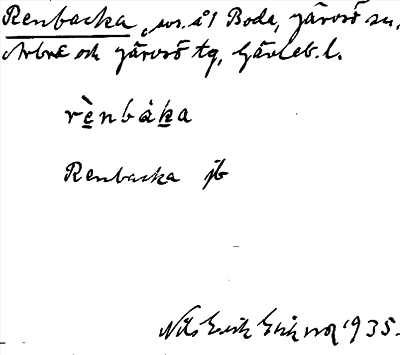 Renbacka, ws. å 1 Boda, Järvsö sn,
Arbrå och Järvsö tg, Gävleb. l.
rènbàka
Renbacka jb
Nils Erik 1935.